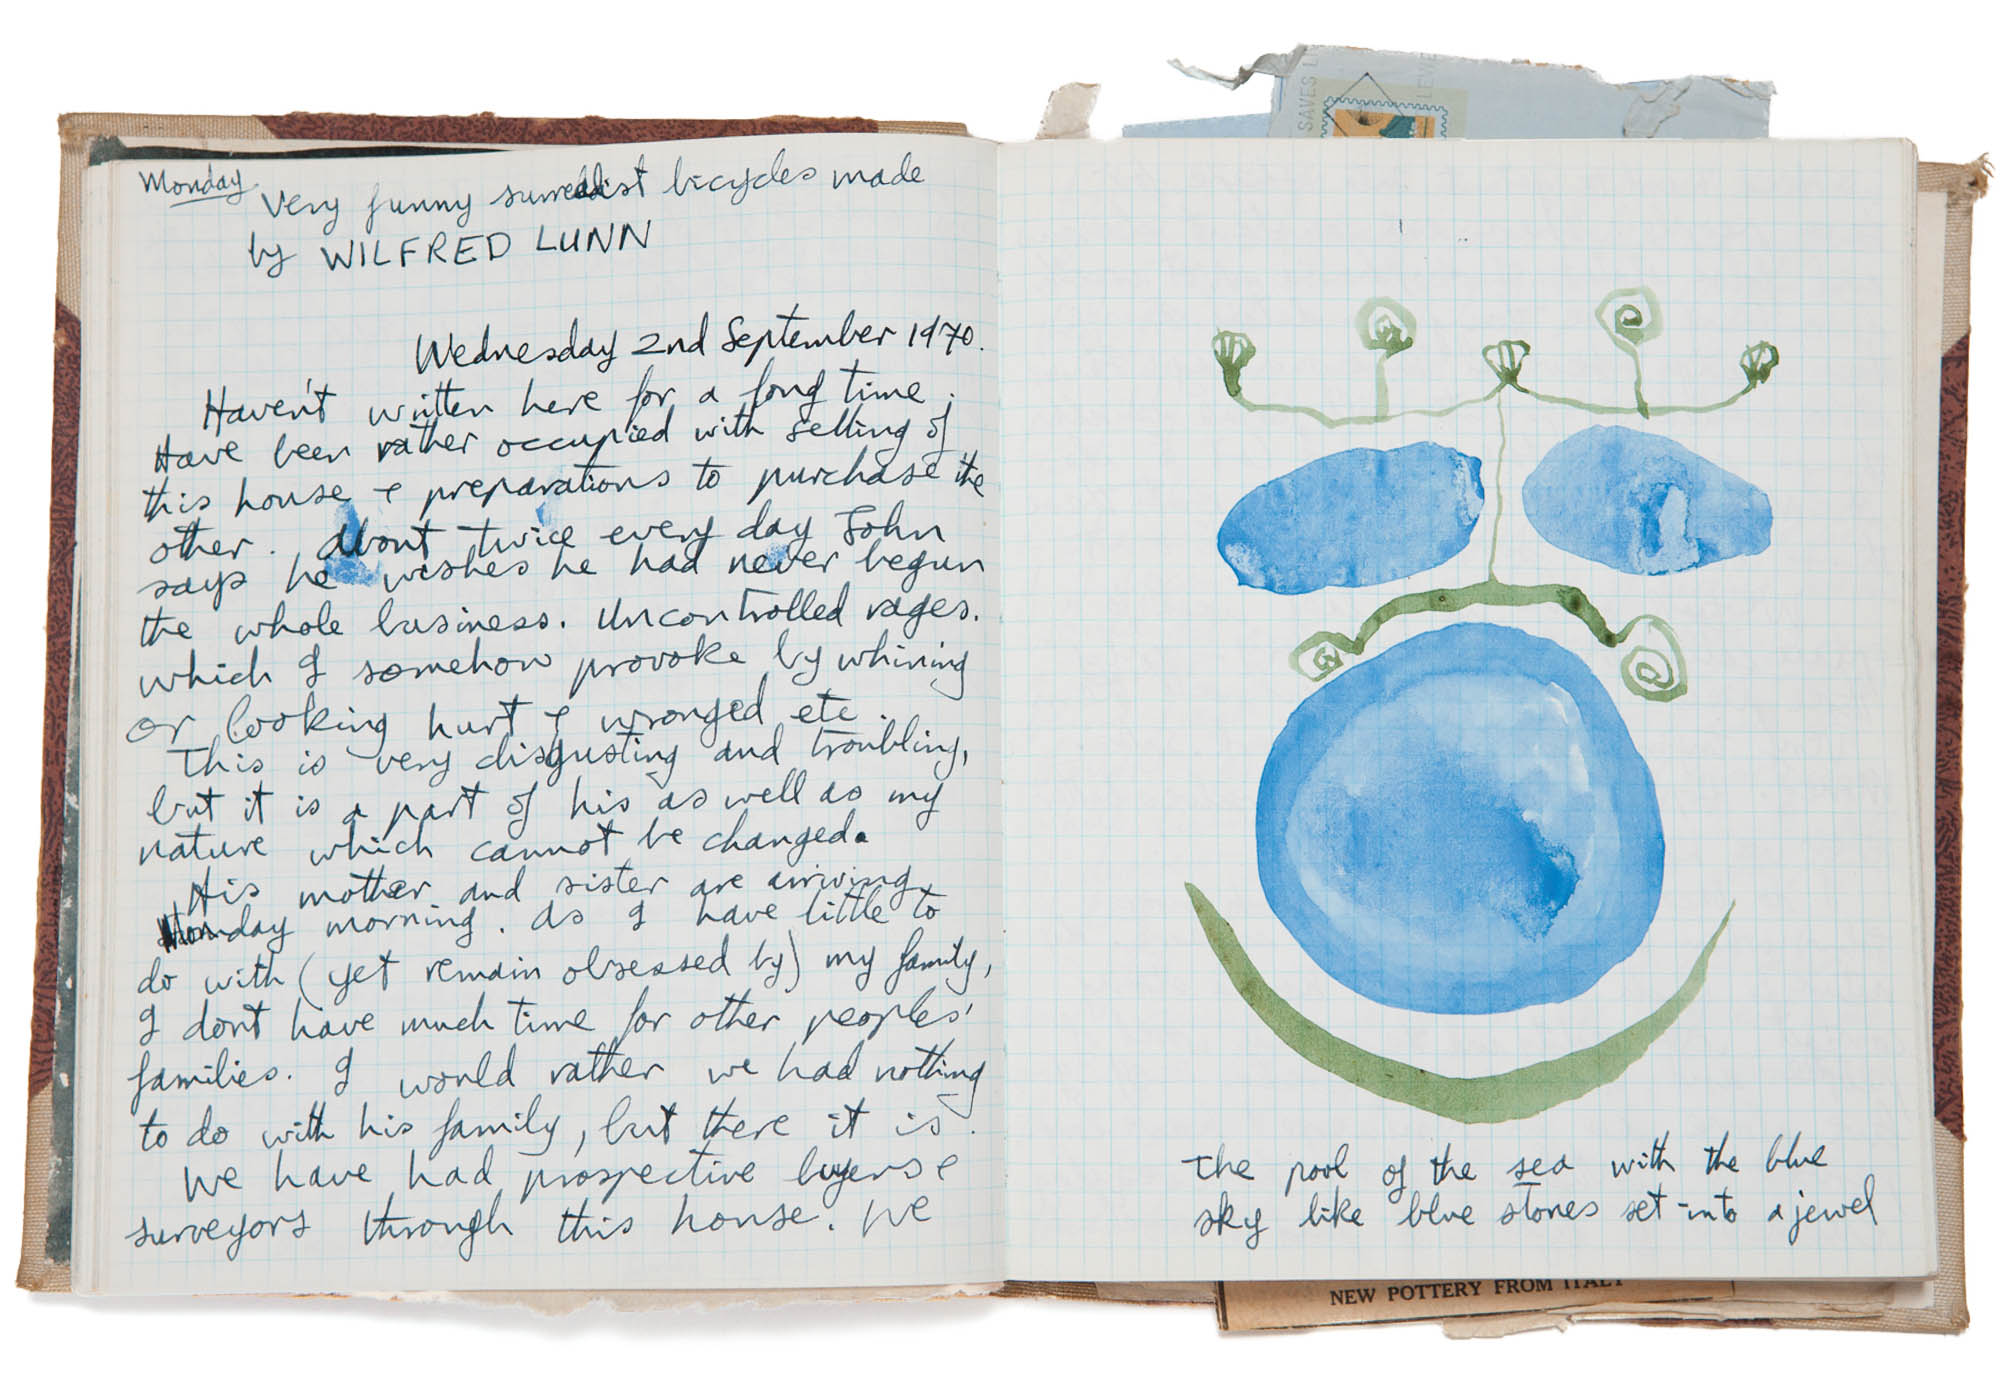 Monday
Very funny surrealist bicycles made
by WILFRED LUNN
Wednesday 2nd September 1970.
Haven't written here for a long time.
Have been rather occupied with selling of
this house & preparations to purchase the
other. About twice every day John
says he wishes he had never begun
the whole business. Uncontrolled rages.
which I somehow provoke by whining
or looking hurt & wronged etc.
This is very disgusting and troubling,
but it is a part of his as well as my
nature which cannot be changed.
His mother and sister are arriving
Monday morning. As I have little to
do with (yet remain obsessed by) my family,
I don't have much time for other peoples'
families. I would rather we had nothing
to do with his family, but there it is.
We have had prospective buyers &
surveyors through this house. We
SAVES
NEW POTTERY FROM ITALY
The pool of the sea with the blue
sky like blue stones set into a jewel